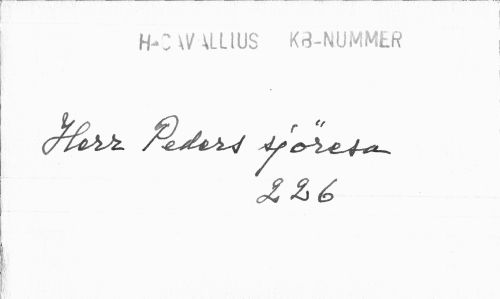 H-CAVALLIUS KB-NUMMER
Herr Peders sjöresa
226